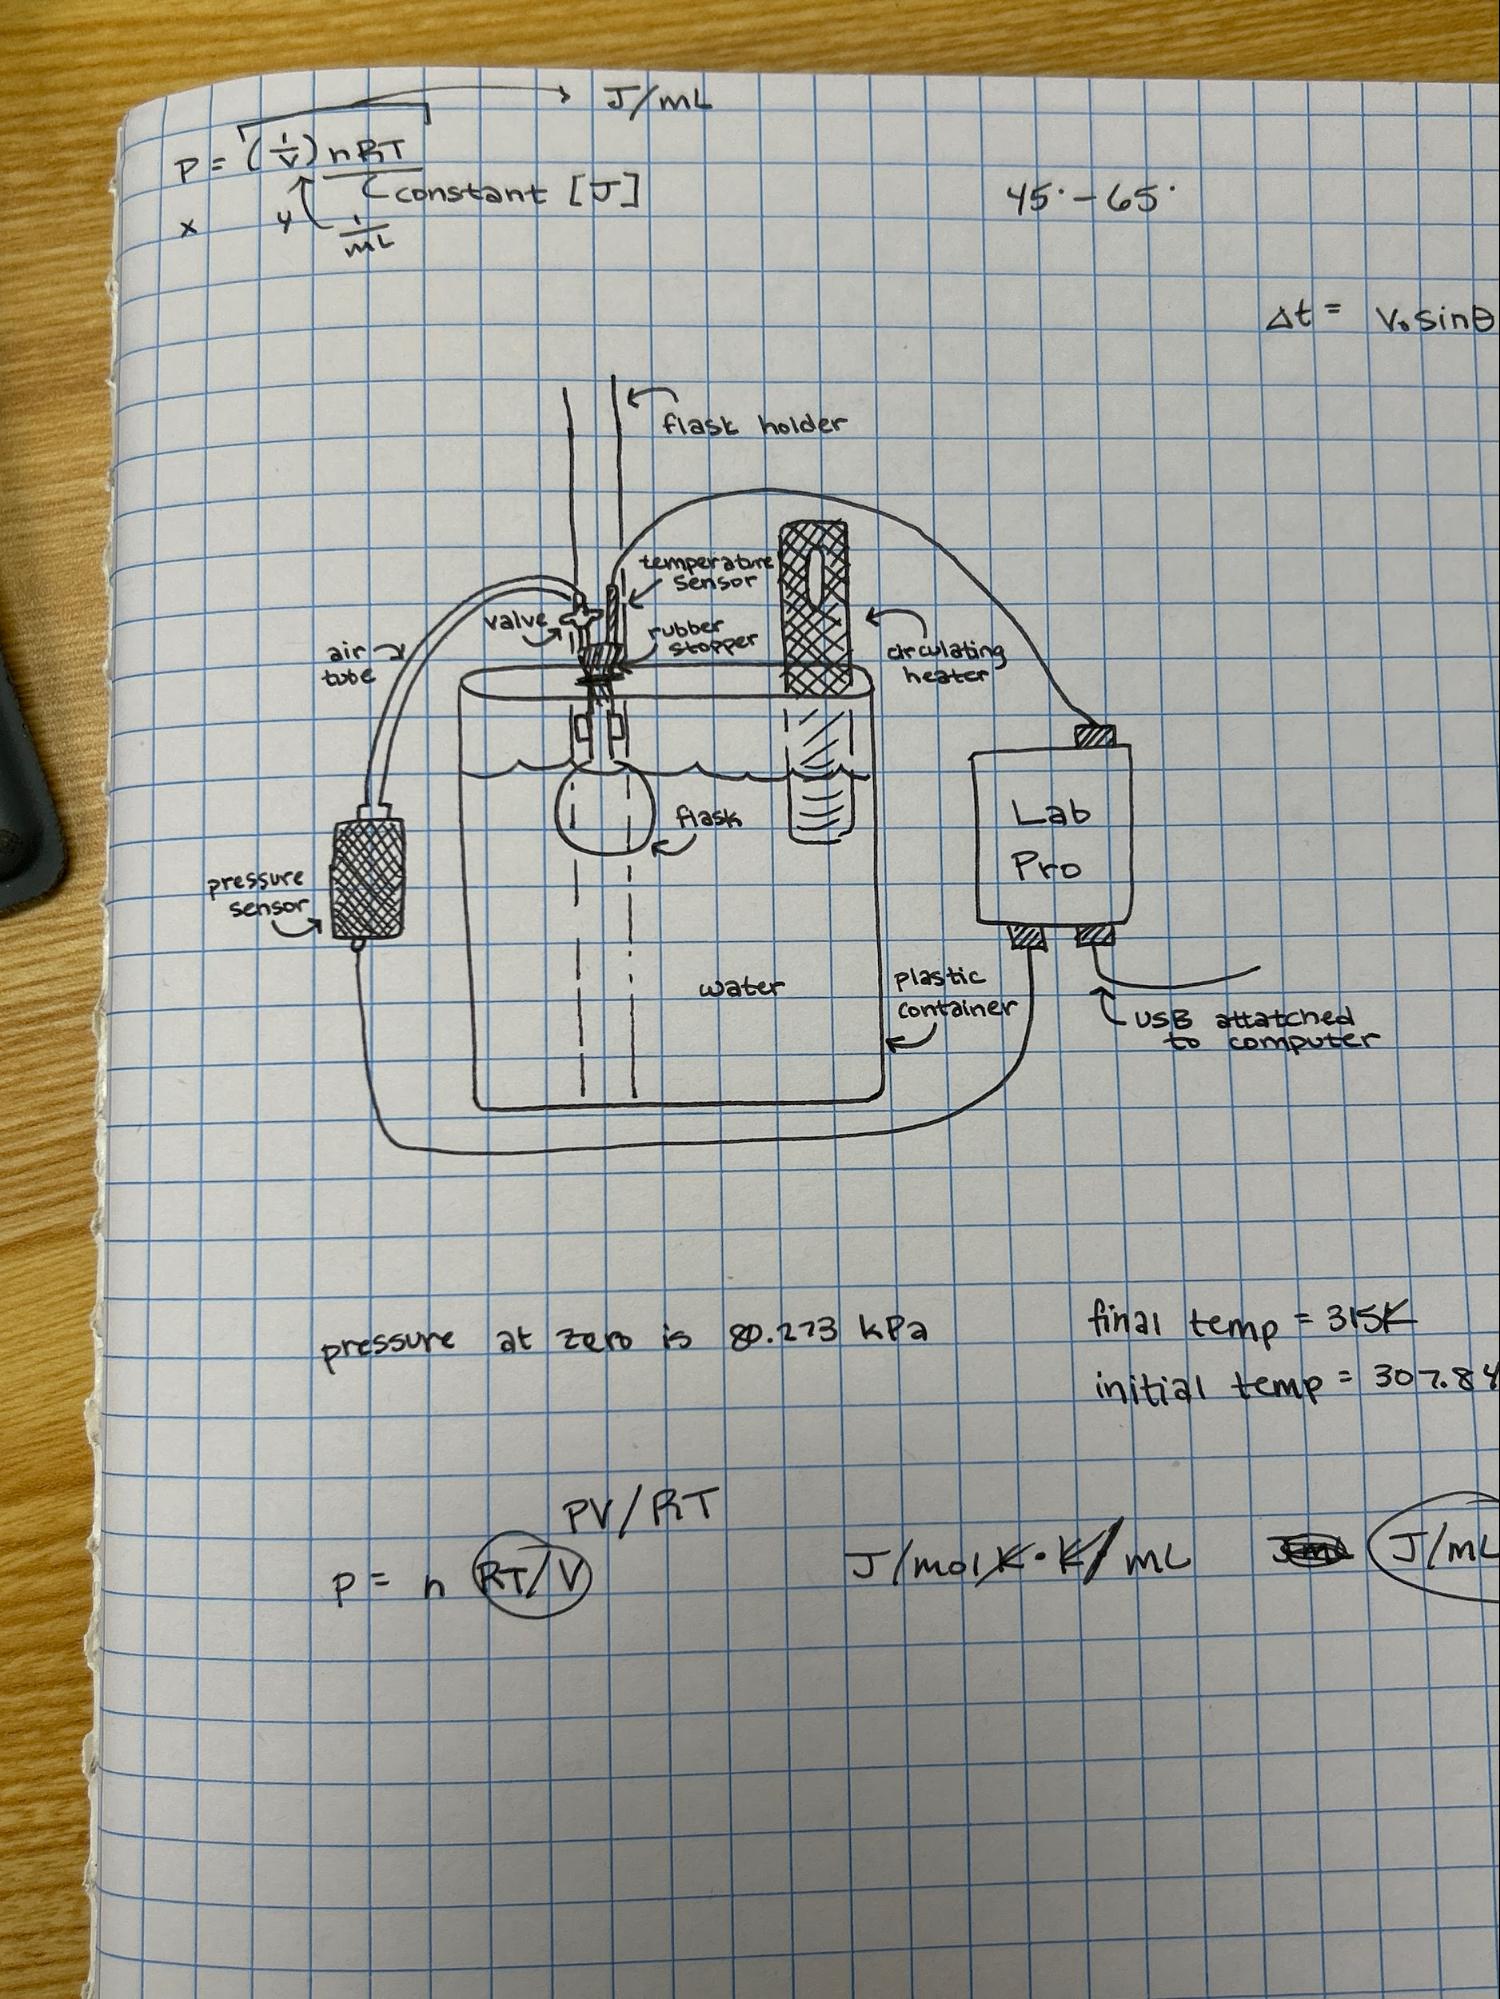 → J/mL
P = (1/V) nRT
constant [J]
x y 1/mL
45° - 65°
Δt = V₀ sinθ
flask holder
temperature
sensor
valve
rubber
stopper
air
tube
circulating
heater
Lab
Pro
flask
pressure
sensor
water
plastic
container
USB attatched
to computer
pressure at zero is 80.273 kPa
final temp = 315K
initial temp = 307.84
PV/RT
P = n RT/V
J/mol K · K / mL
J/mL